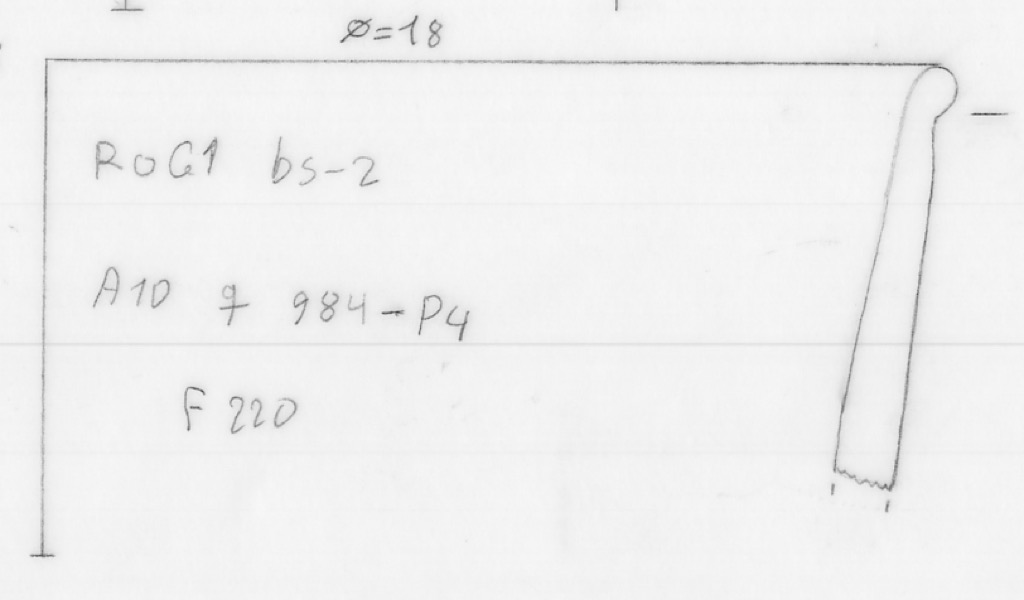 ø=18
RoG1 bs-2
A10 q 984-P4
F 220